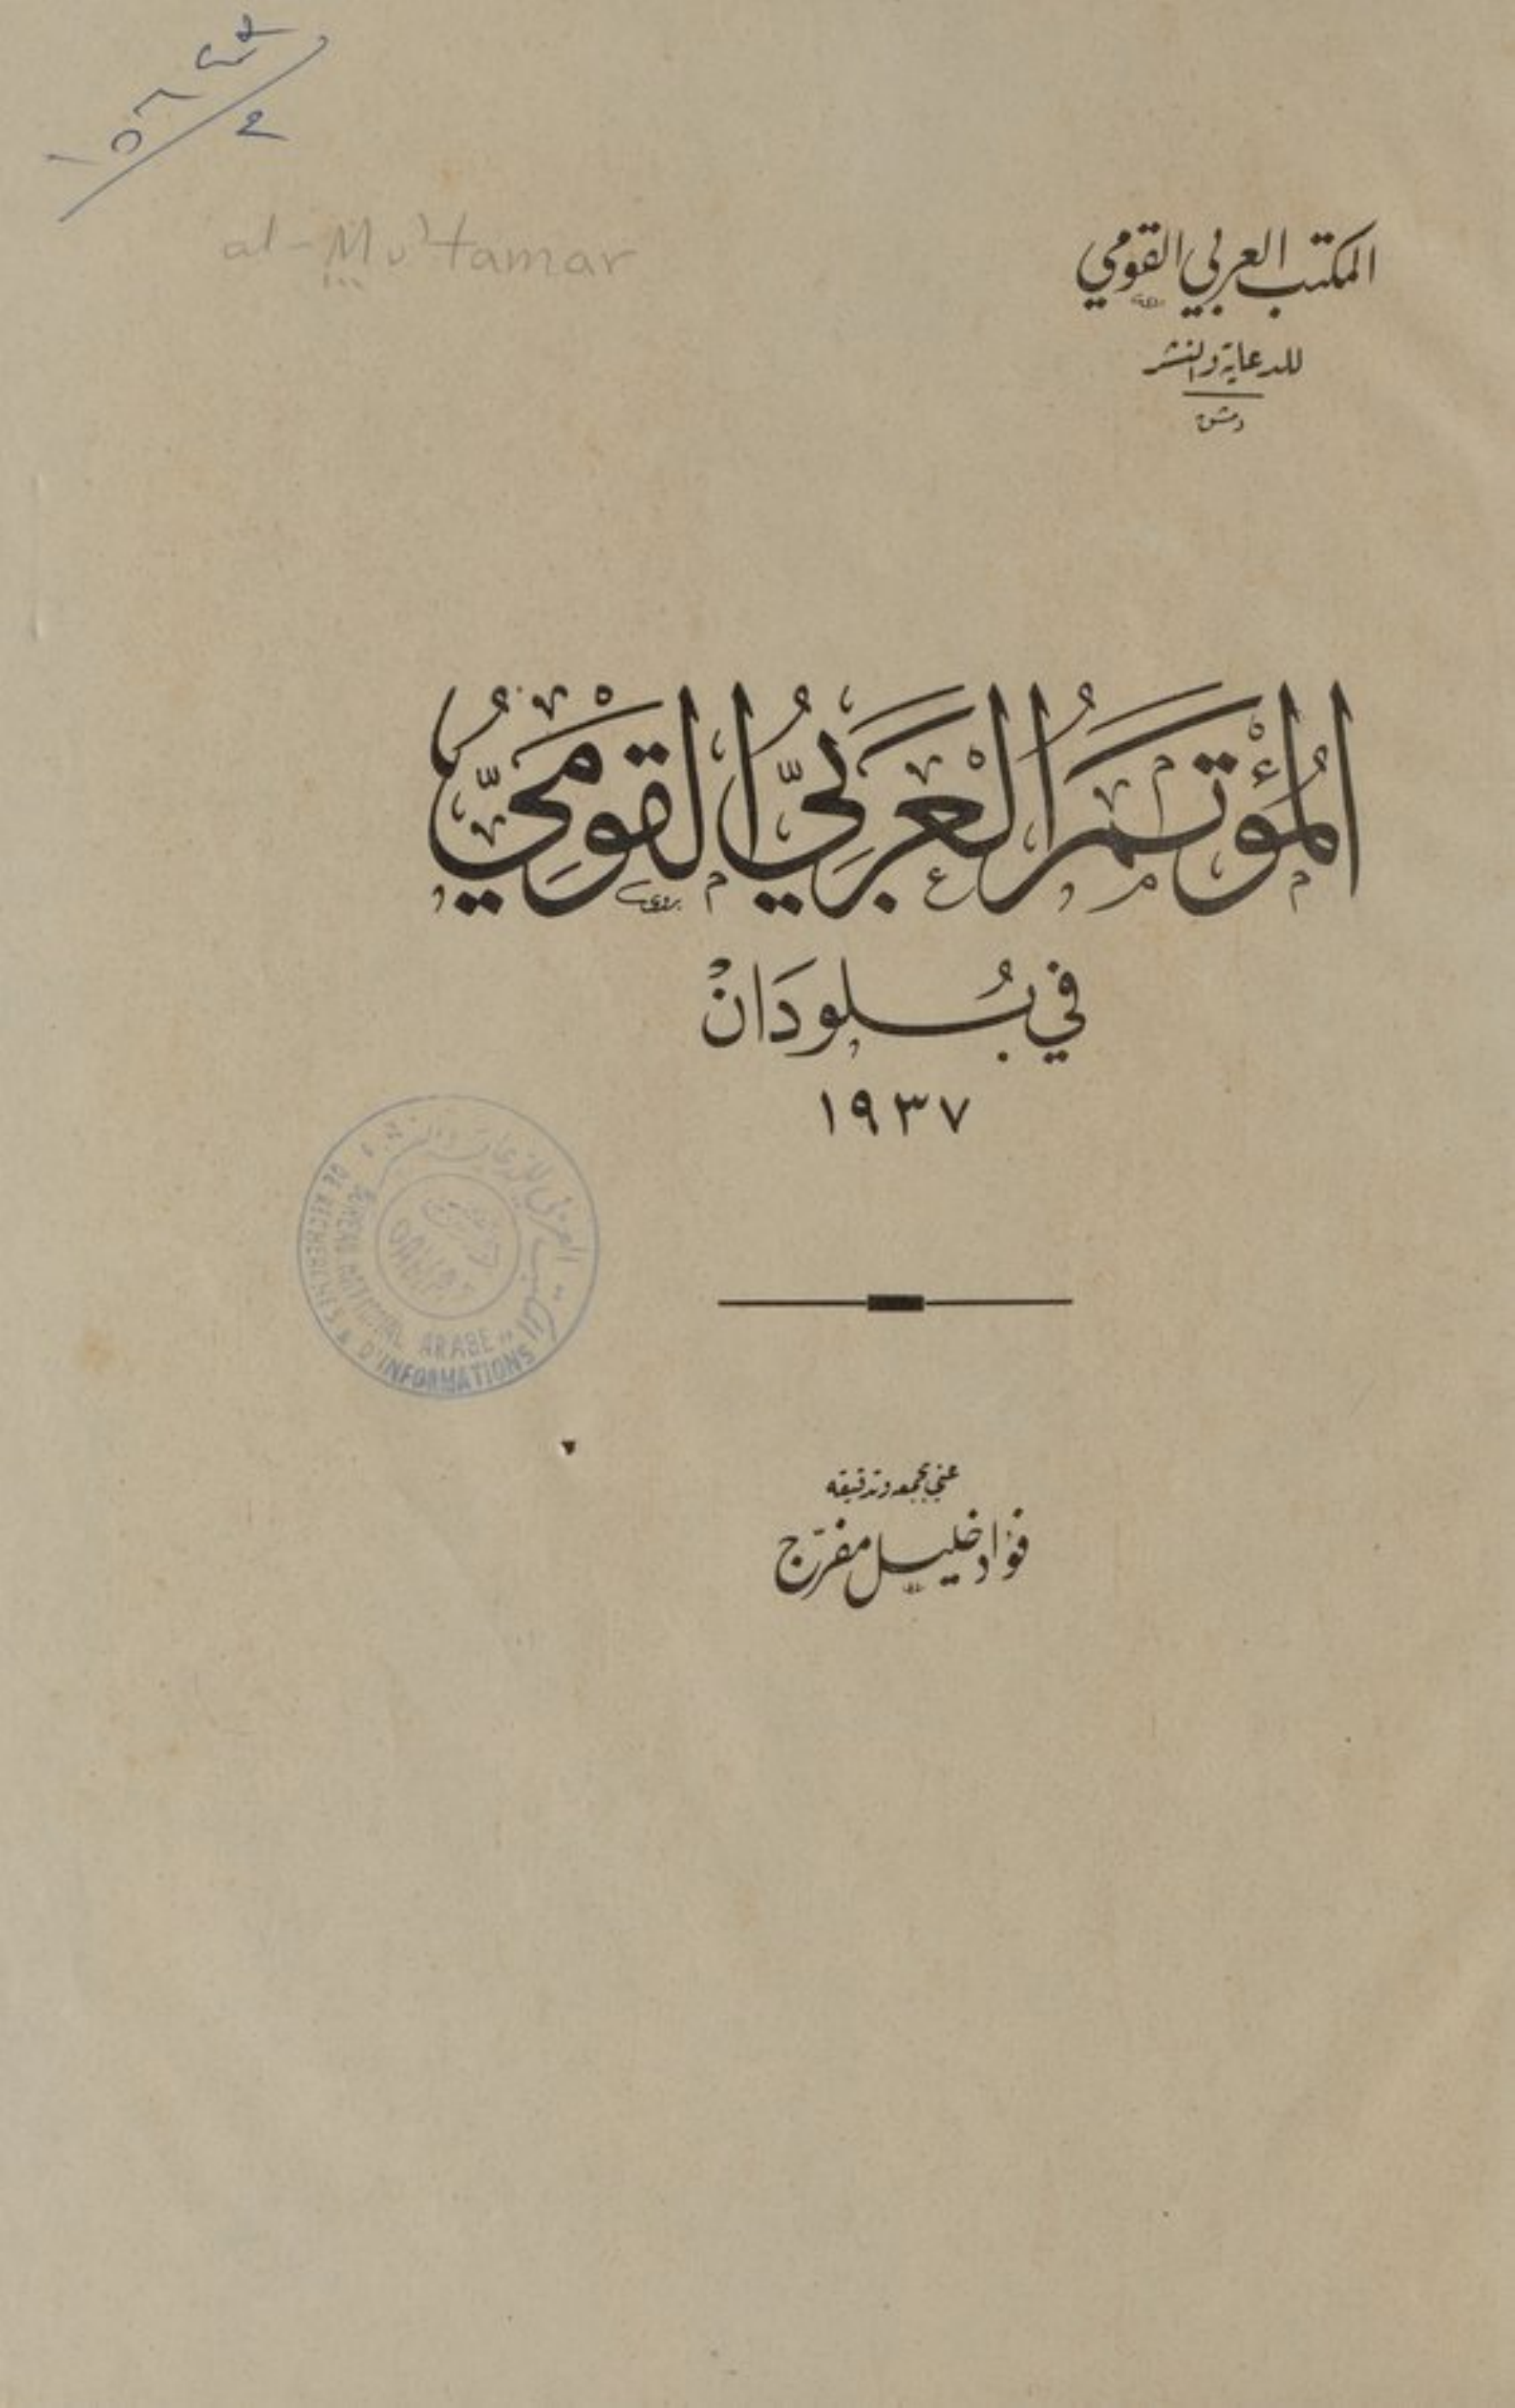 al-Mu'tamar
المكتب العربي القومي
للدعاية والنشر
دمشق
المُؤْتَمَرُ العَرَبيُّ القَوْمِيُّ
في بُلودَانْ
١٩٣٧
المكتب العربي للدعاية والنشر
BUREAU NATIONAL ARABE
DE RECHERCHES & D'INFORMATIONS
عني بجمعه وتدقيقه
فؤاد خليل مفرّج